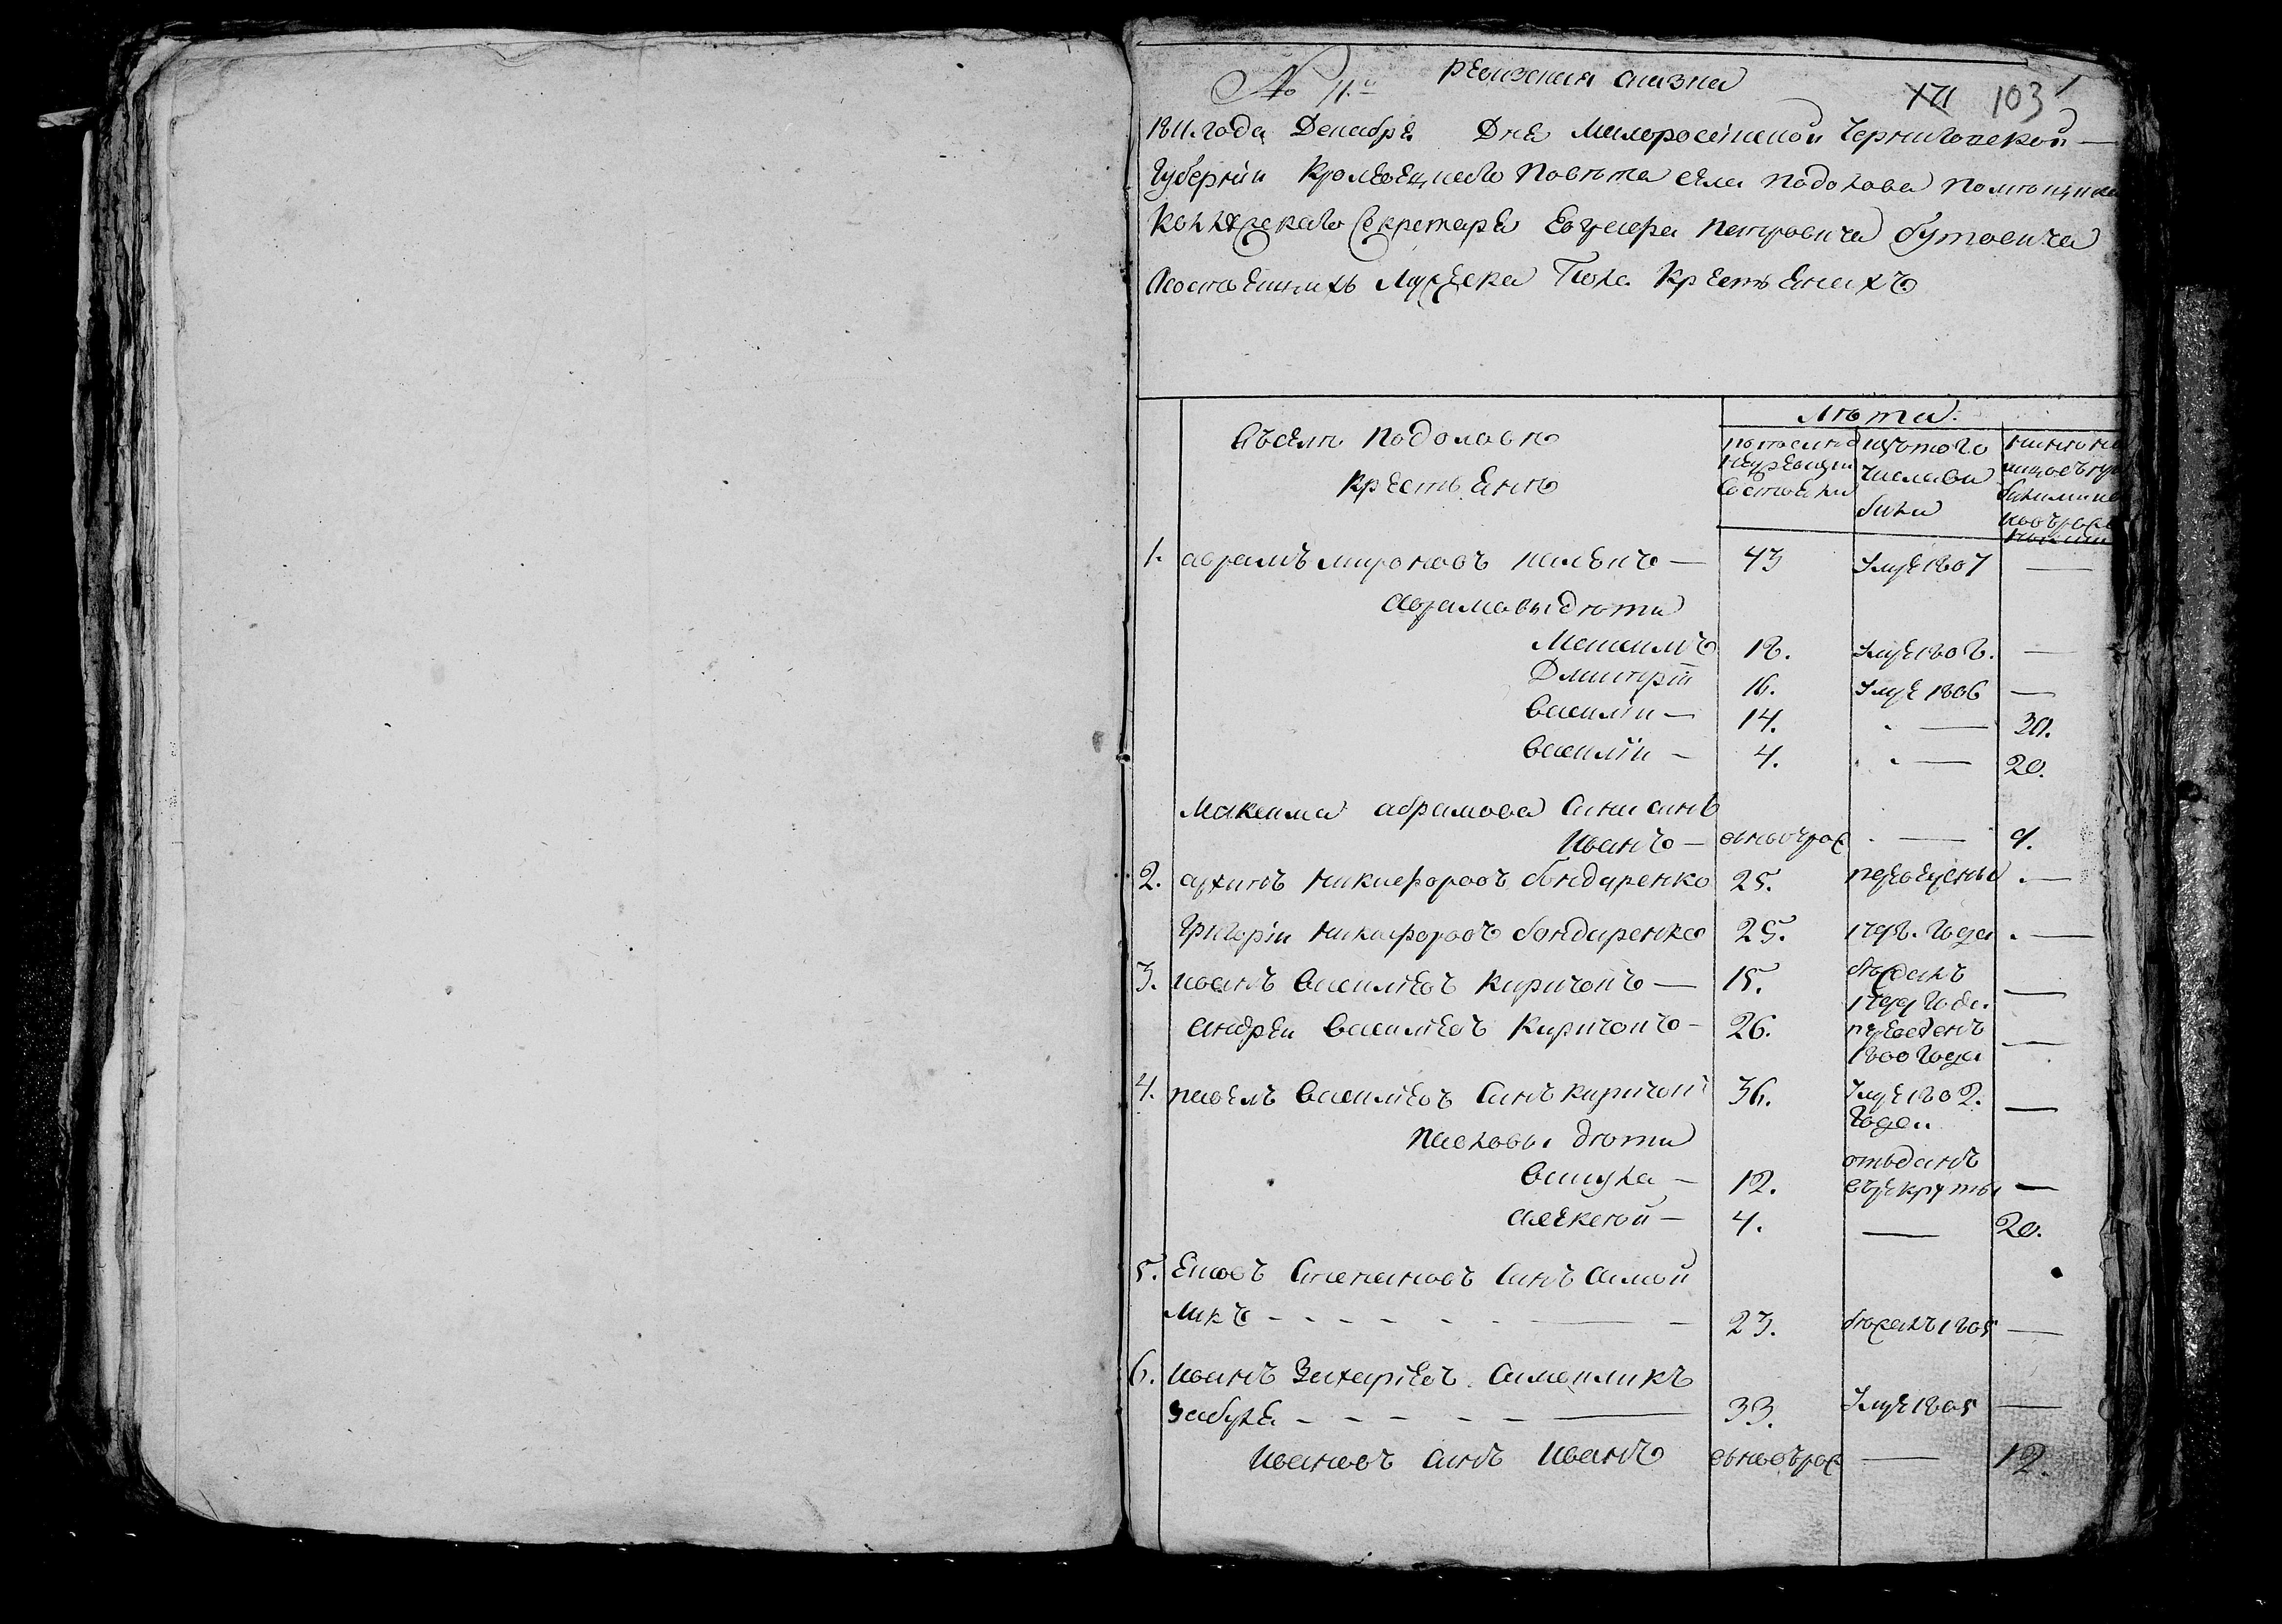 № 11й ревизская сказка
171 103
1811 года Декабря Дня Малоросiйской Черниговской
Губернiи Кролевецкаго Повѣта села Подолова помѣщика
Коллежскаго Секретаря Евгрефа Петровича Бутовича
Асостоящихъ Мужеска Пола Крестьянахъ
Лѣта
Въселѣ Подоловѣ
крестьянъ
попоследней ревизiи состояли
изътого числа выбили
нынѣ налицо
1. Аврамъ Мироновъ — 43 Умре 1807 —
Аврамовы дѣти
Максимъ 18. Умре 1808. —
Дмитрiй 16. Умре 1806 —
Василiй — 14. — 30.
Василiй — 4. — 20.
Максима Абрамова Сина синъ
Иванъ — вновърож — 9.
2. Архипъ Никифоровъ Бондаренко 25. переведены —
Григорiй Никифоровъ Бондаренко 25. 1798. Года —
3. Иванъ Василiевъ Киричокъ — 15. бѣжалъ 1799 Года. —
Андрей Василiевъ Киричокъ — 26. переведенъ 1800 Года —
4. Павелъ Василiевъ Синъ Киричокъ 36. Умре 1802. Года. —
Павловы дѣти
Вакула — 12. отъданъ върекруты —
Алексѣй — 4. — 20.
5. Степановъ Синъ Самой
ликъ — 23. бѣжалъ 1805 —
6. Иванъ Захарiевъ Самойликъ
Забула — 33. Умре 1805 —
Ивановъ Синъ Иванъ вновърож — 12.